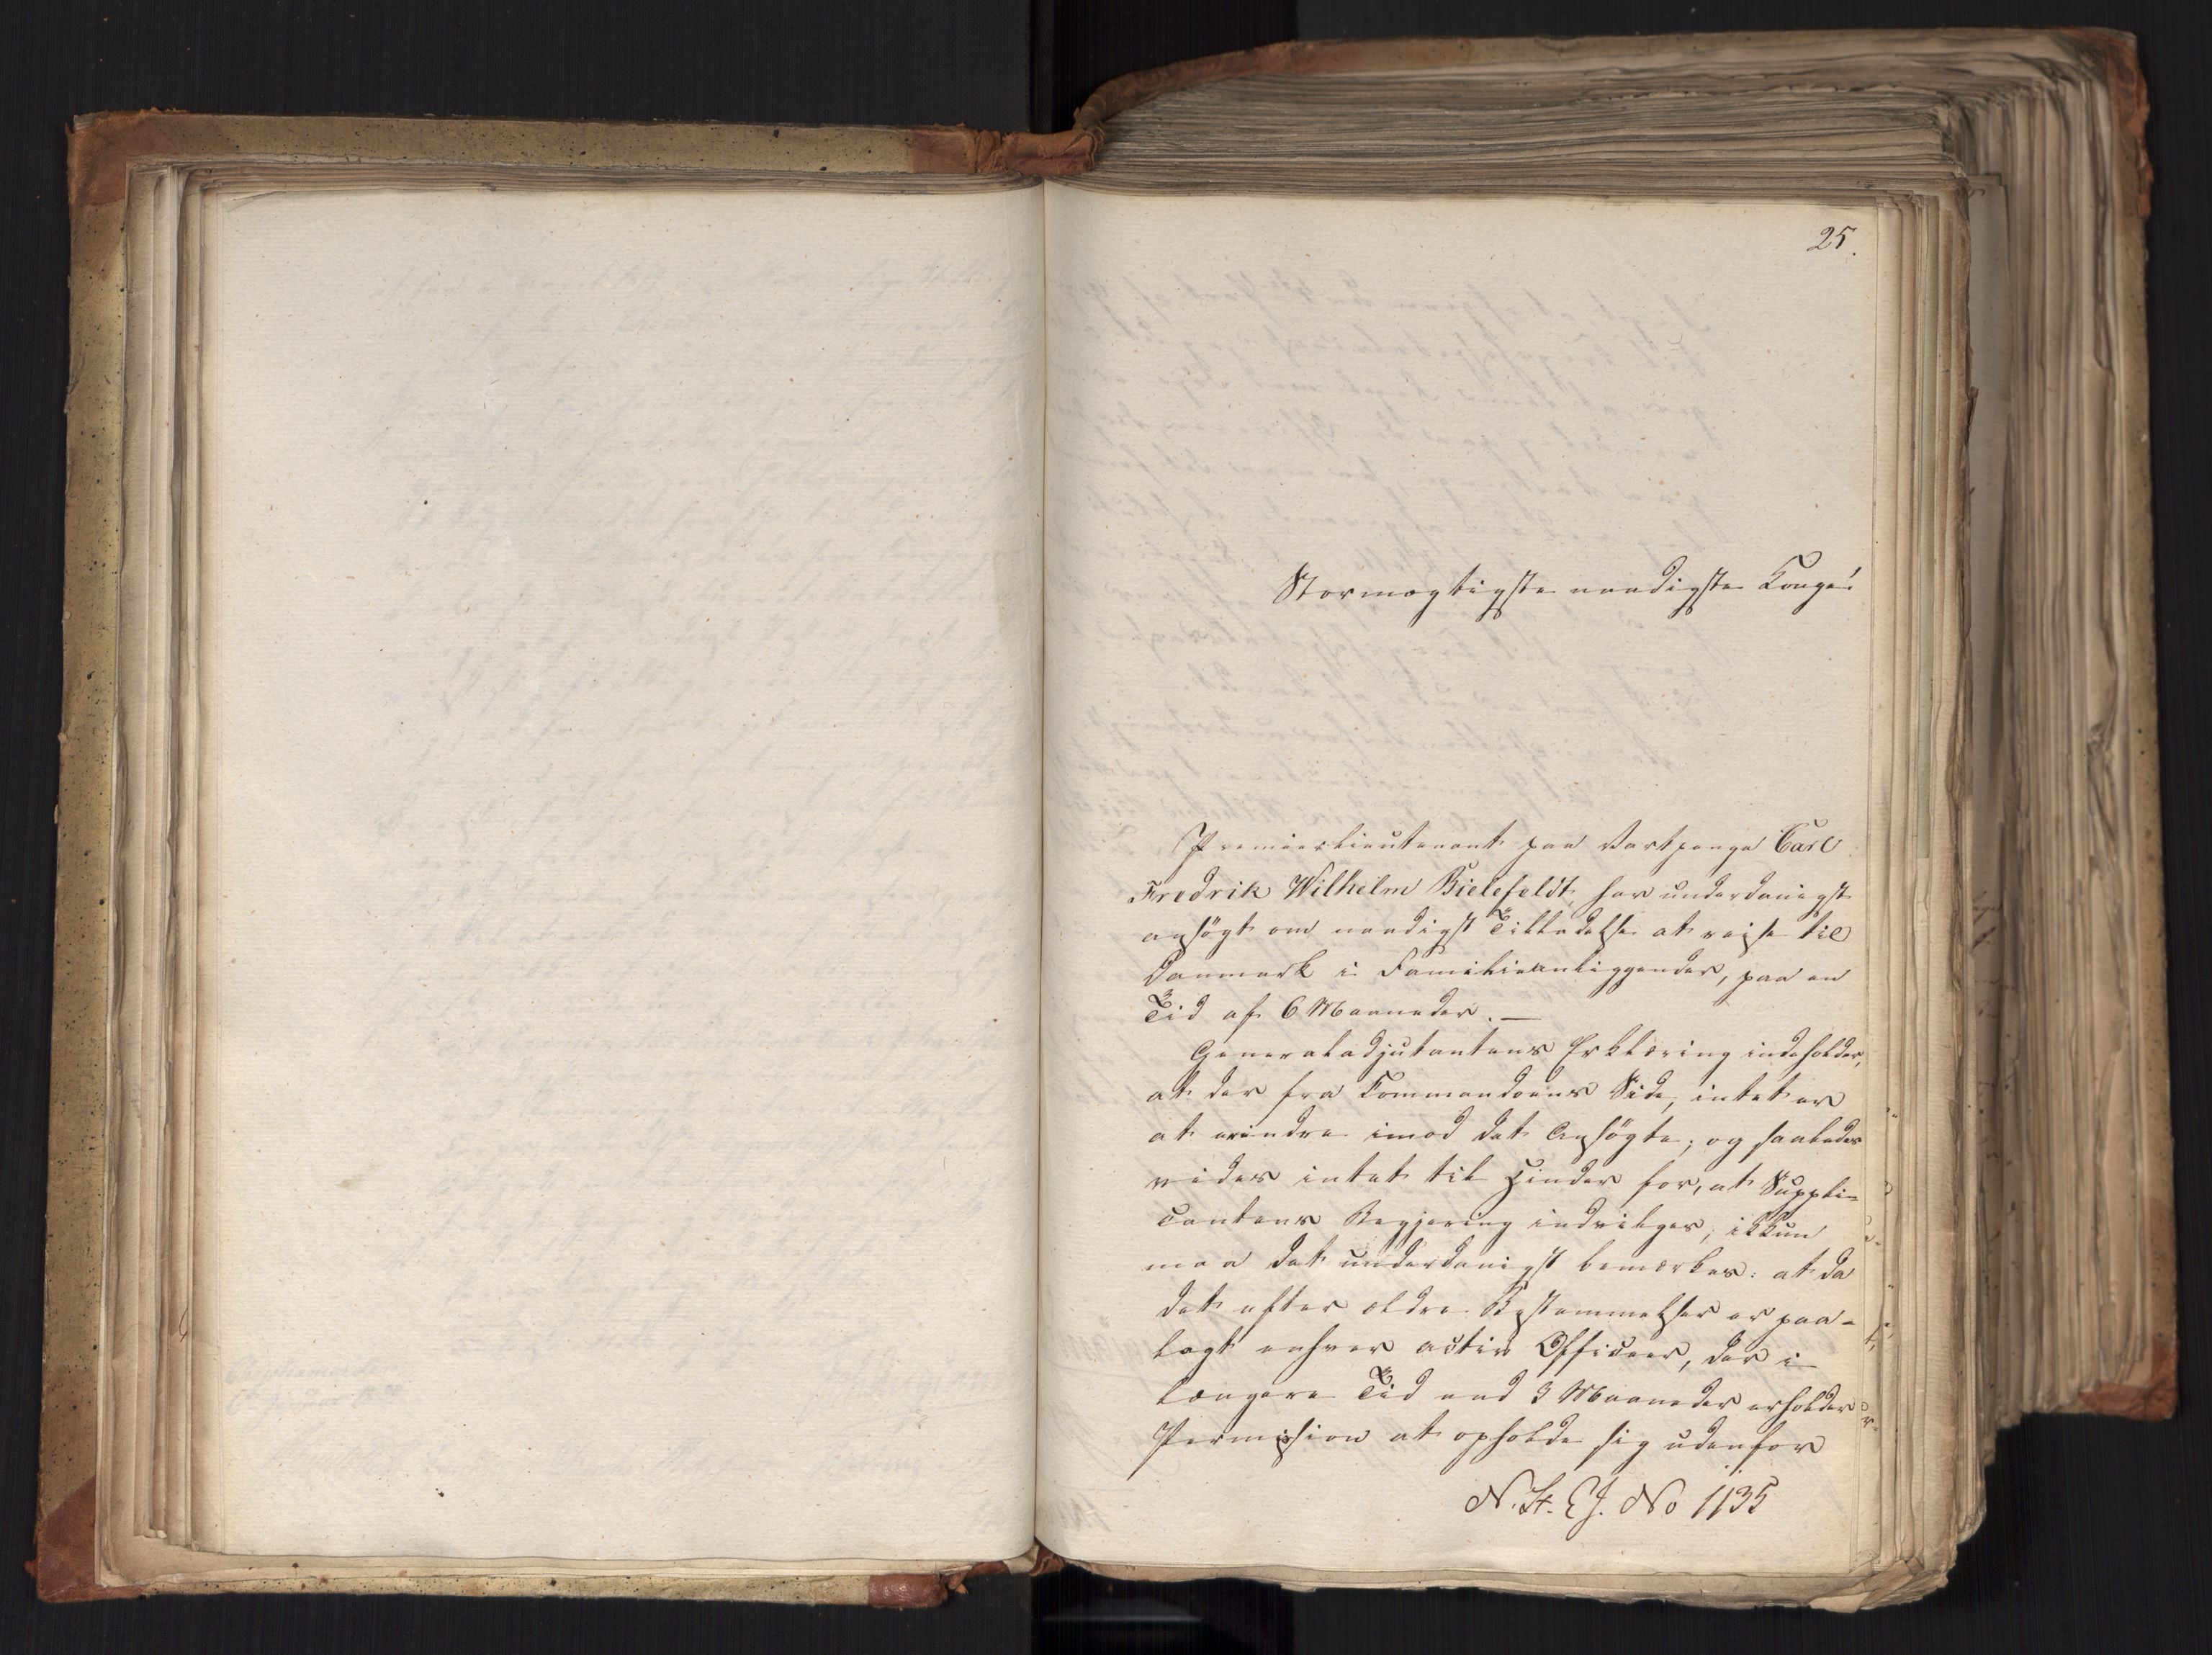 25.
Stormægtigste naadigste Konge!
Premierlieutenant paa Vartpenge Carl
Fredrik Wilhelm Bielefeldt, har underdanigst
ansögt om naadigst Tilladelse at reise til
Danmark i Familieanliggender, paa en
Tid af 6 Maaneder. —
Generaladjutantens Erklæring indeholder,
at der fra Commandoens Side, intet er
at erindre imod det Ansögte; og saaledes
vides intet til Hinder for, at Suppli-
cantens Begjæring indvilges; ikkun
maa det underdanigst bemærkes: at da
det efter ældre Bestemmelser er paa-
lagt enhver activ Officeer, der i
længere Tid end 3 Maaneder erholder
Permission at opholde sig udenfor
N. St. Ex. No 1135